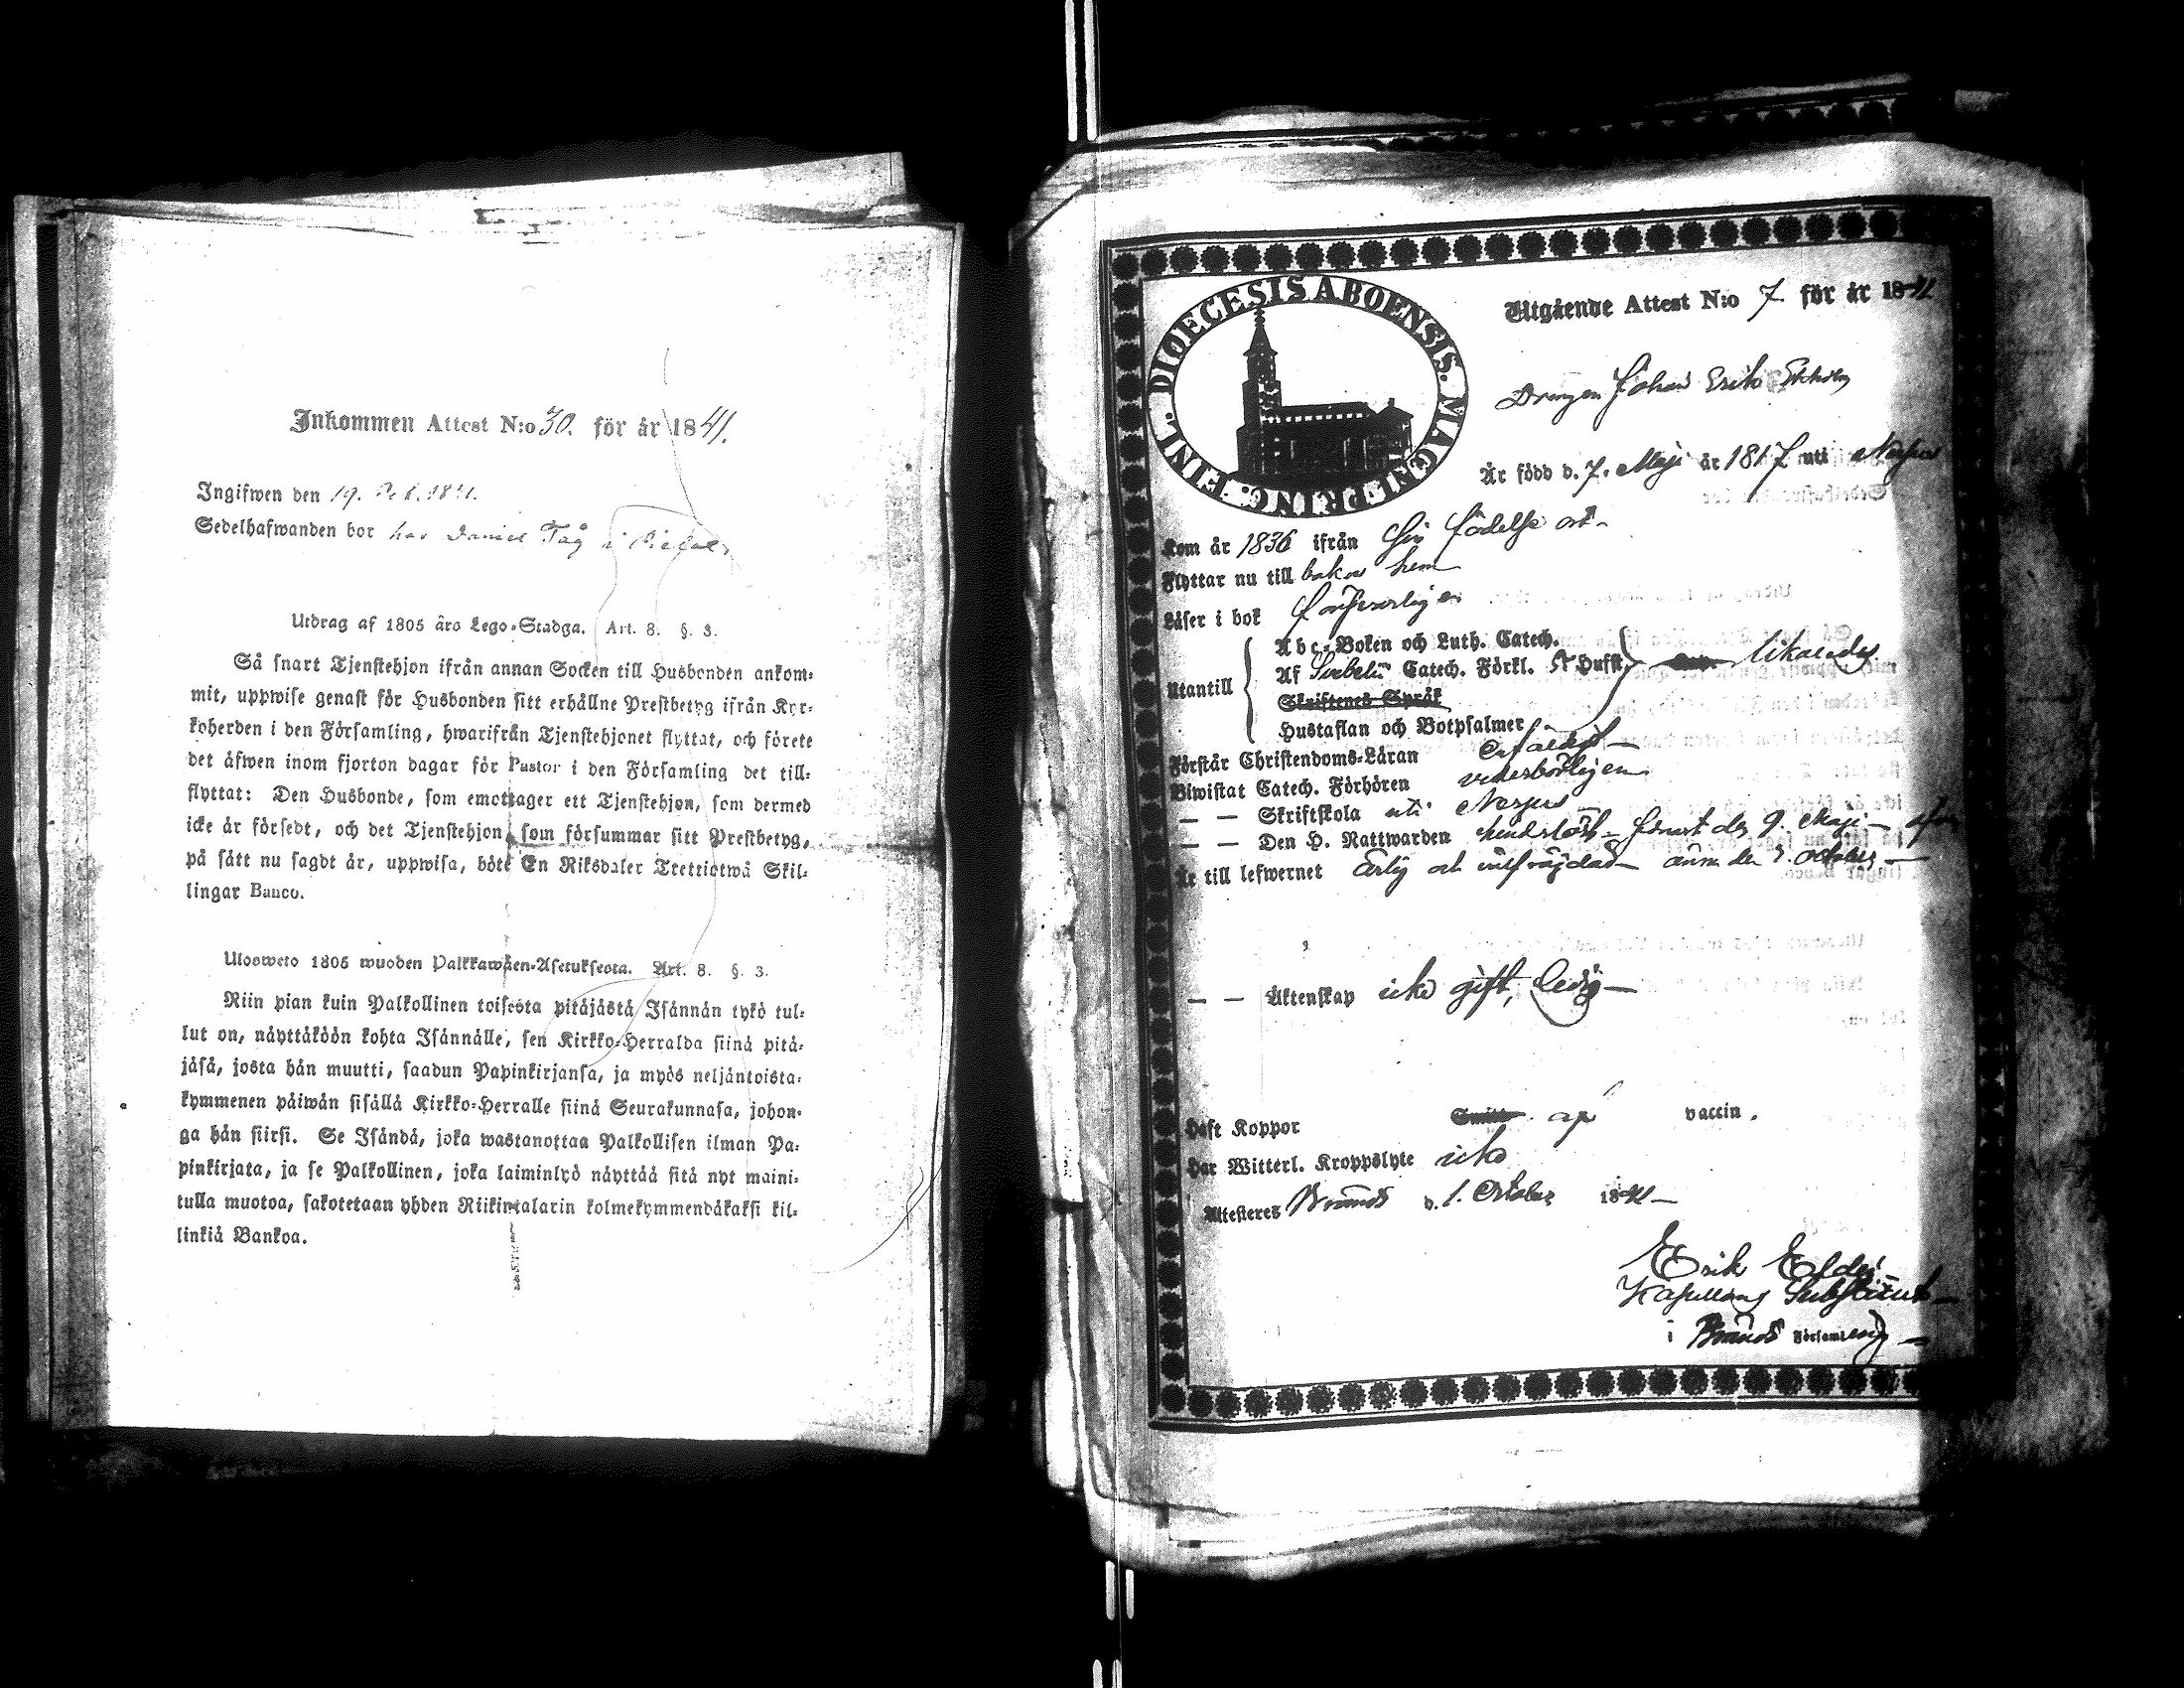 Inkommen Attest N:o 30. för år 1841.
Ingifwen den 19. 1841.
Sedelhafwanden bor hos Daniel Tåg i
Utdrag af 1805 års Lego-Stadga. Art. 8. §. 3.
Så snart Tjenstehjon ifrån annan Socken till Husbonden ankom-
mit, uppwise genast för Husbonden sitt erhållne Prestbetyg ifrån Kyr-
koherden i den Församling, hwarifrån Tjenstehjonet flyttat, och förete
det äfwen inom fjorton dagar för Pastor i den Församling det till-
flyttat: Den Husbonde, som emottager ett Tjenstehjon, som dermed
icke är försedt, och det Tjenstehjon som försummar sitt Prestbetyg,
på sätt nu sagdt är, uppwisa, böte En Riksdaler Trettiotwå Skil-
lingar Banco.
Ulosweto 1805 wuoden Palkkawäen-Asetuksesta. Art. 8. §. 3.
Niin pian kuin Palkollinen toisesta pitäjästä Isännän tykö tul-
lut on, näyttäköön kohta Isännälle, sen Kirkko-Herralda siinä pitä-
jäsä, josta hän muutti, saadun Papinkirjansa, ja myös neljäntoista-
kymmenen päiwän sisällä Kirkko-Herralle siinä Seurakunnasa, johon-
ga hän siirsi. Se Isändä, joka wastanottaa Palkollisen ilman Pa-
pinkirjata, ja se Palkollinen, joka laiminlyö näyttää sitä nyt maini-
tulla muotoa, sakotetaan yhden Riikintalarin kolmekymmendäkaksi kil-
linkiä Bankoa.
DIOECESIS ABOENSIS. MAGN: PRINC: FINL.
Utgående Attest N:o 7. för år 1841
Drengen Johan Erik Ekholm
Är född d. 7. Maji år 1817 uti
Kom år 1836 ifrån Sin födelse ort
Flyttar nu till bakas hem
Läser i bok försvarligen
Utantill
Abc-Boken och Luth. Catech.
Af Svebelii Catech. Förkl. Husft. likaledes
Skriftenes Språk
Hustaflan och Botpsalmer
Förstår Christendoms-Läran
Biwistat Catech. Förhören vederbörligen
— — Skriftskola uti
— — Den H. Nattwarden d. 9. Maji
Är till lefwernet ärlig och den 3. October
— — Äktenskap icke gift, ledig
Haft Koppor vaccin.
Har Witterl. Kroppslyte icke
Attesteres Brändö d. 1. October 1841
Erik
Kapellans Substitut
i Brändö Församling